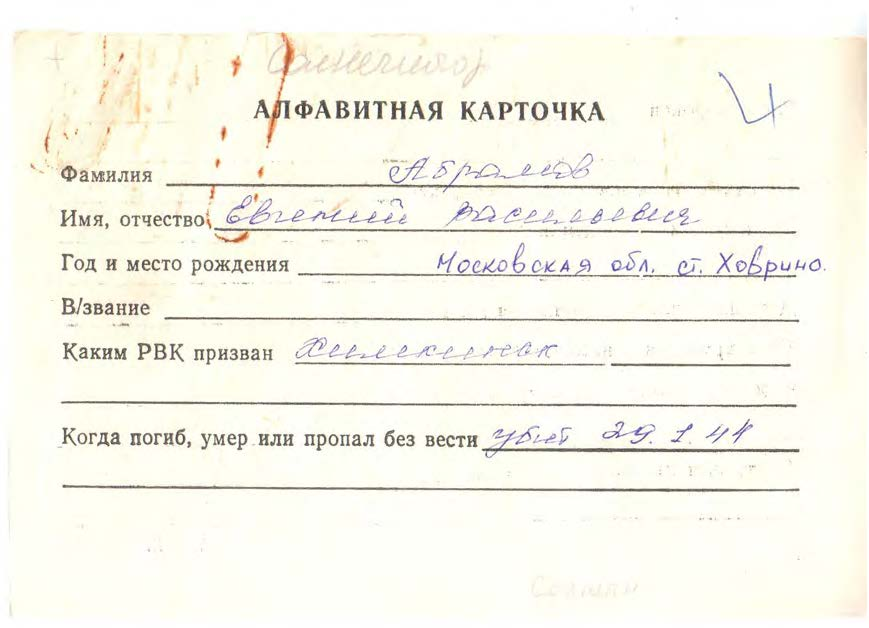 Солнечногор
АЛФАВИТНАЯ КАРТОЧКА
Фамилия Абрамов
Имя, отчество Евгений Васильевич
Год и место рождения Московская обл. ст. Ховрино.
В/звание
Каким РВК призван Химкинск
Когда погиб, умер или пропал без вести убит 29.1.44